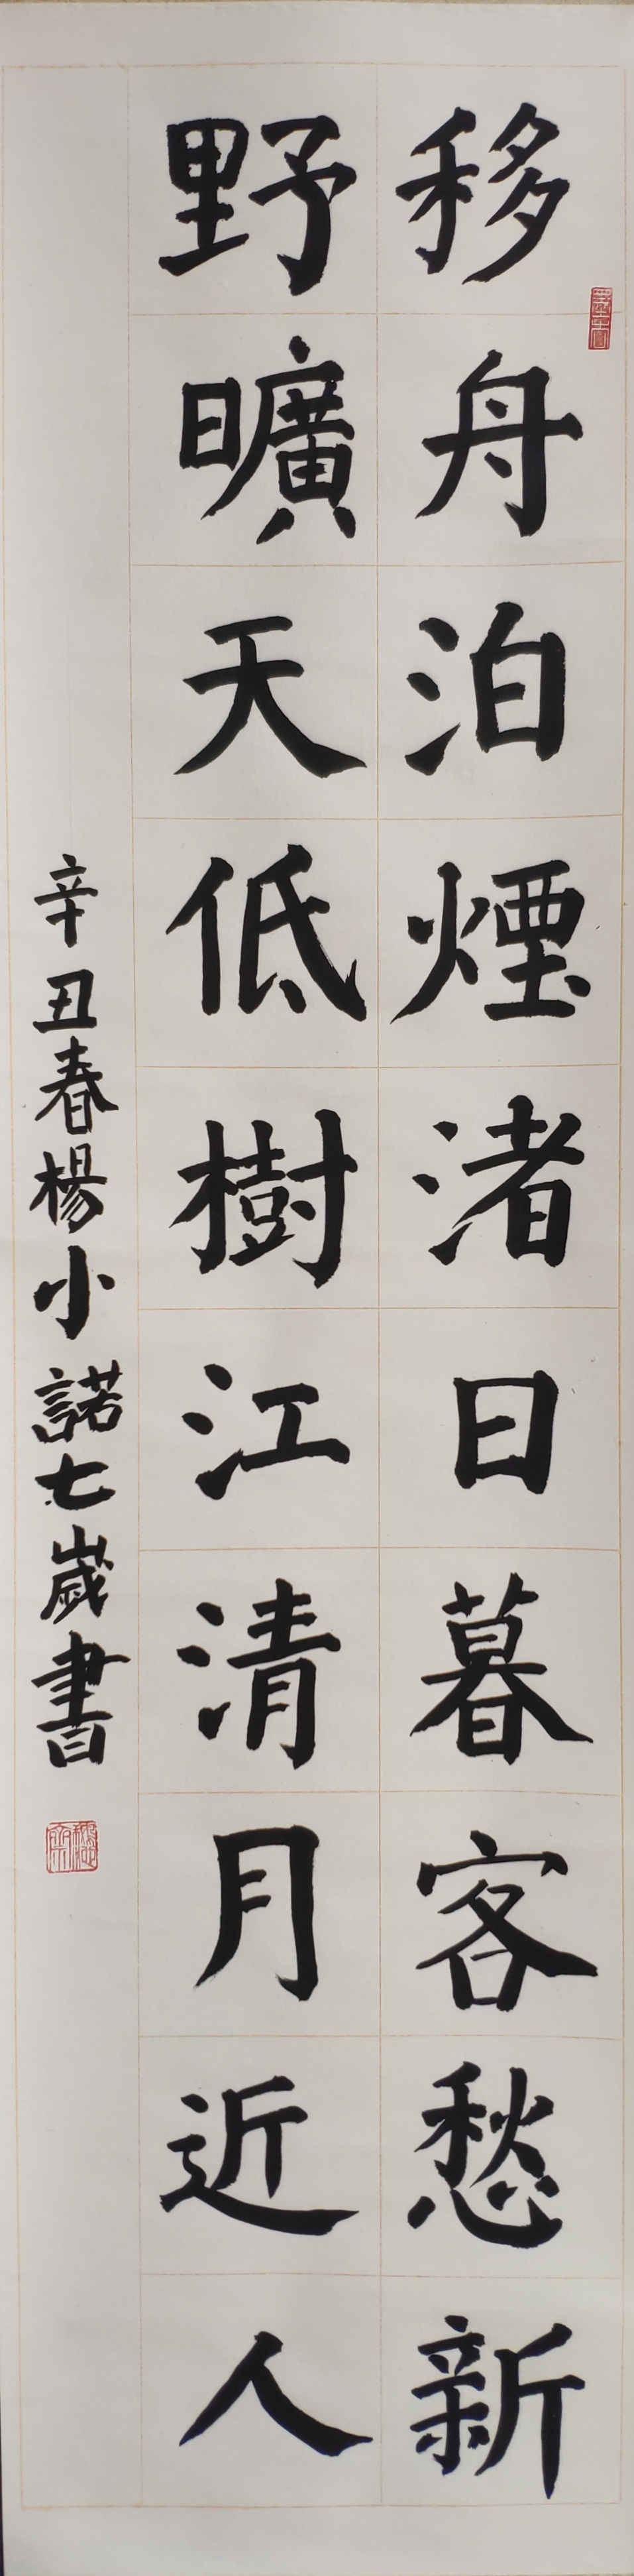 移舟泊煙渚日暮客愁新
野曠天低樹江清月近人
辛丑春楊小諾七歲書